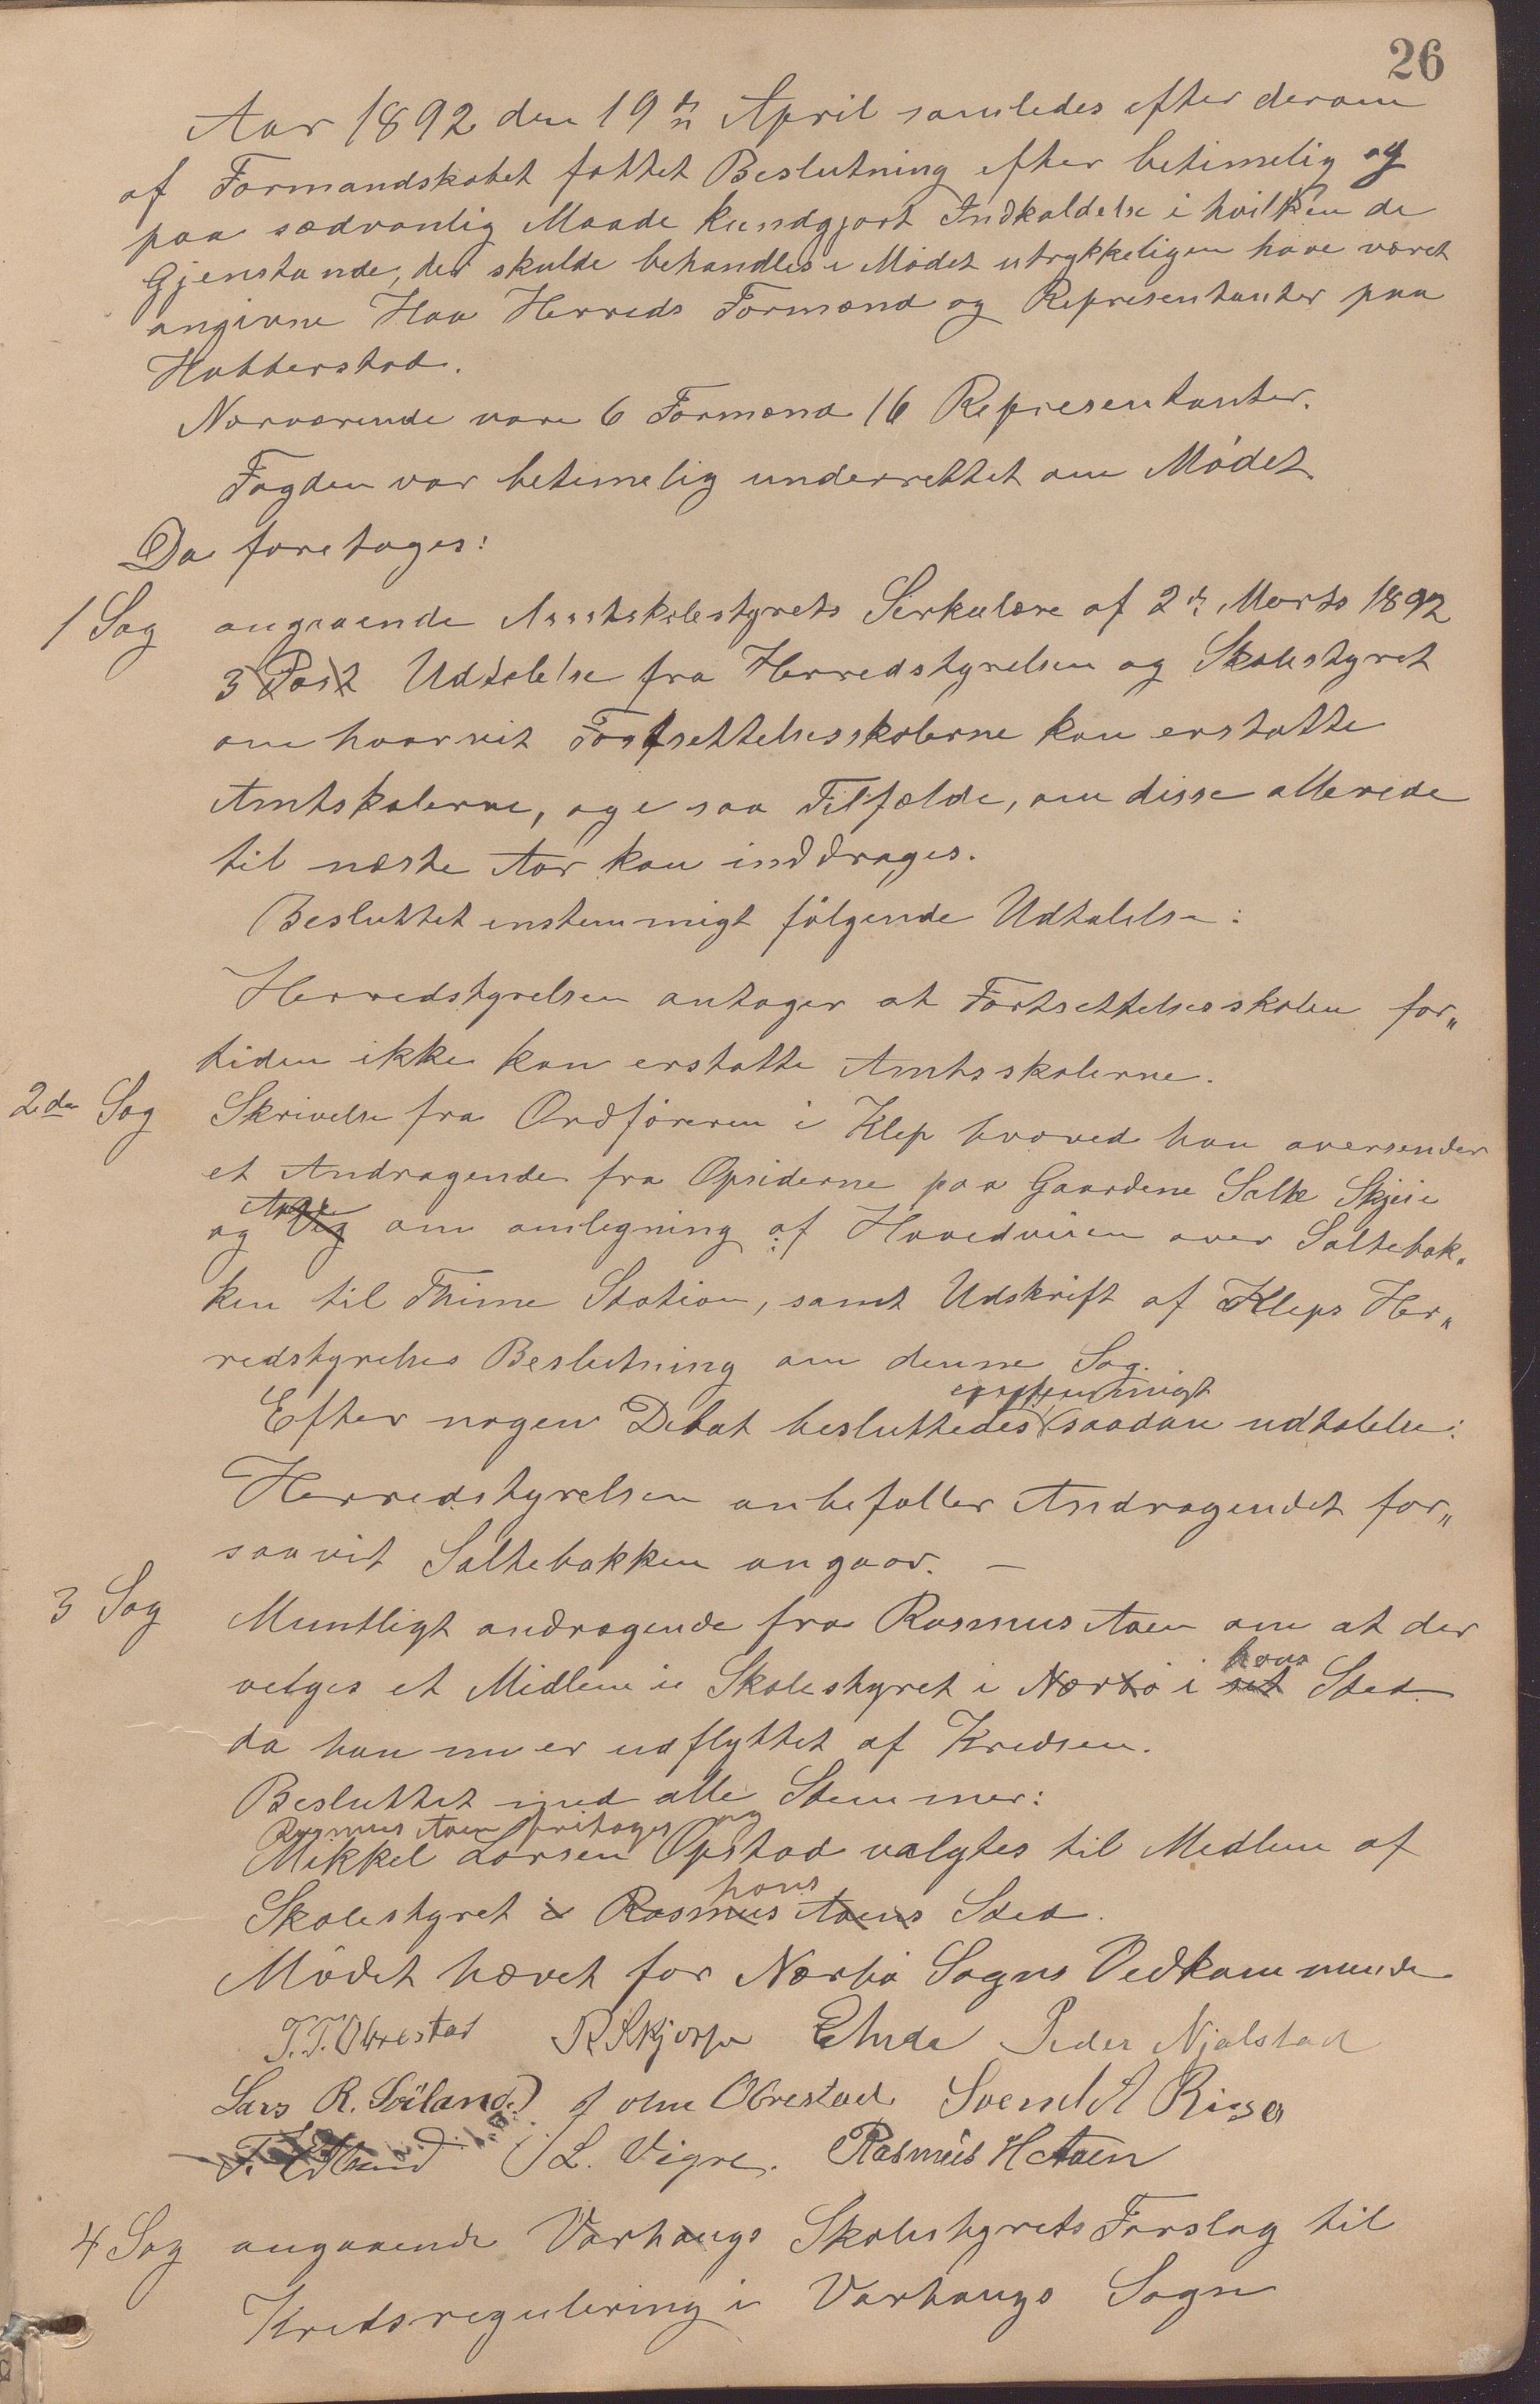 26
Aar 1892 den 19de April samledes efter derom
af Formandskabet fattet Beslutning efter betimelig og
paa sædvanlig Maade kundgjort Indkaldelse i hvilken de
Gjenstande, der skulde behandles i Mødet utrykkeligen have været
angivne Haa Herreds Formænd og Representanter paa
Hatterstad.
Nærværende vare 6 Formænd 16 Representanter.
Fogden var betimelig underrettet om Mødet
Da foretoges:
1 Sag angaaende Amtskolestyrets Serkulære af 2de Marts 1892
3 Post Udtalelse fra Herredstyrelsen og Skolestyret
om hvorvit Fortsettelsesskolerne kan erstatte
Amtskolerne, og i saa Tilfælde, om disse allerede
til næste Aar kan inddrages.
Besluttet enstemmigt følgende Udtalelse:
Herredstyrelsen antager at Fortsettelsesskolen for„
tiden ikke kan erstatte Amtsskolerne.
2den Sag Skrivelse fra Ordføreren i Klep hvoved han oversender
et Andragende fra Opsiderne paa Gaardene Salte Skjeie
og Vig om omlegning af Hovedveien over Saltebak„
ken til Thime Station, samt Udskrift af Kleps Her„
redstyrelses Beslutning om denne Sag.
enstemmigt
Efter nogen Debat besluttedes saadan udtalelse:
Herredstyrelsen anbefaller Andragendet for„
saavit Saltebakken angaar. —
3 Sag Muntligt andragende fra Rasmus Aaen om at der
hans
velges et Midlem i Skolestyret i Nærbø i sit Sted
da han nu er udflyttet af Kredsen.
Besluttet med alle Stemmer:
Rasmus Aaen fritages og
Mikkel Larsen Opstad valgtes til Medlem af
hans
Skolestyret i Rasmus Aaens Sted.
Mødet hævet for Nærbø Sogns Vedkommende
T. T. Obrestad R Skjerpe E Ande Peder Njalstad
Lars R. Söiland. John Obrestad Svend A Risa
L. Vigre. Rasmus H Aaen
4 Sag angaaende Varhaugs Skolestyrets Forslag til
Kredsregulering i Varhaugs Sogn